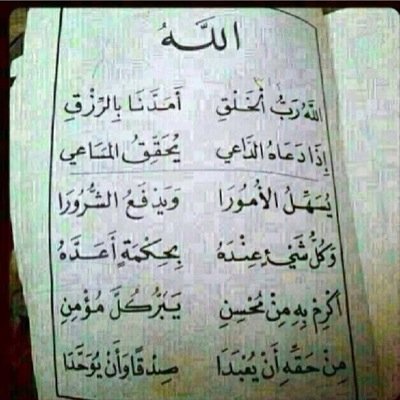 اللَّهُ
اللَّهُ رَبُّ الْخَلْقِ أَمَدَّنَا بِالرِّزْقِ
إِذَا دَعَاهُ الدَّاعِي يُحَقِّقُ الْمَسَاعِي
يُسَهِّلُ الْأُمُورَا وَيَدْفَعُ الشُّرُورَا
وَكُلُّ شَيْءٍ عِنْدَهُ بِحِكْمَةٍ أَعَدَّهُ
أَكْرِمْ بِهِ مِنْ مُحْسِنِ يَبَرُّ كُلَّ مُؤْمِنِ
مِنْ حَقِّهِ أَنْ يُعْبَدَا صِدْقًا وَأَنْ يُوَحَّدَا